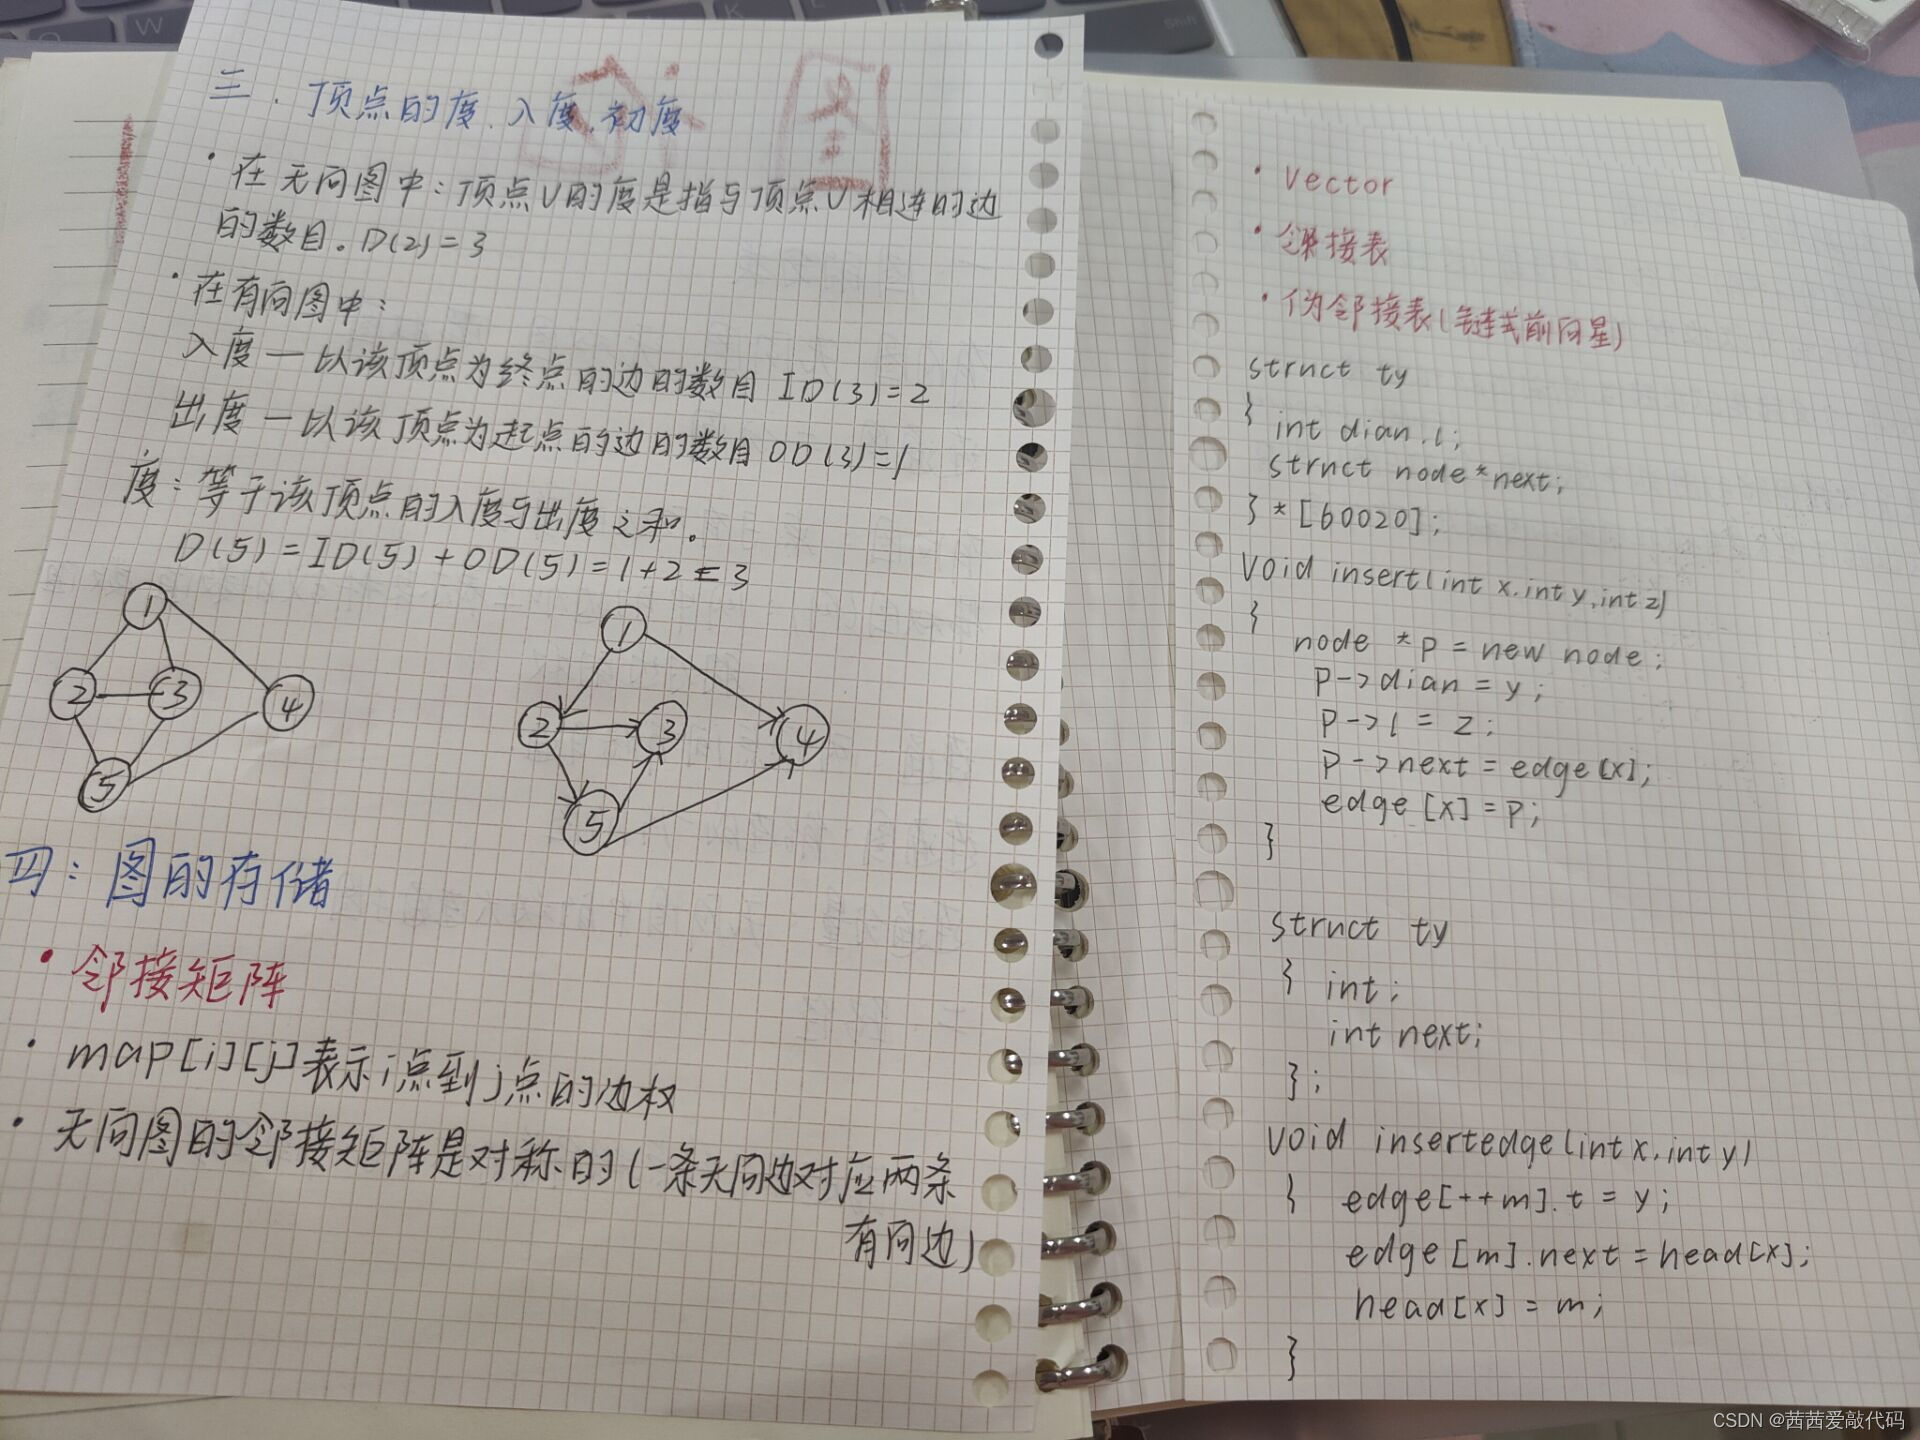 三.顶点的度.入度.初度
·在无向图中:顶点V的度是指与顶点V相连的边
的数目。D(2)=3
·在有向图中:
入度—以该顶点为终点的边的数目 ID(3)=2
出度—以该顶点为起点的边的数目 OD(3)=1
度:等于该顶点的入度与出度之和。
D(5)=ID(5)+OD(5)=1+2=3
1
2
3
4
5
1
2
3
4
5
四:图的存储
·邻接矩阵
·map[i][j]表示i点到j点的边权
·无向图的邻接矩阵是对称的(一条无向边对应两条
有向边)
图
·vector
·邻接表
·伪邻接表(链式前向星)
struct ty
{ int dian.l;
struct node*next;
}*[60020];
void insert(int x.int y,int z)
{
node *p=new node;
p->dian=y;
p->l=z;
p->next=edge[x];
edge[x]=p;
}
struct ty
{ int;
int next;
};
void insertedge(int x.int y)
{ edge[++m].t=y;
edge[m].next=head[x];
head[x]=m;
}
Shift
W
K
CSDN @茜茜爱敲代码